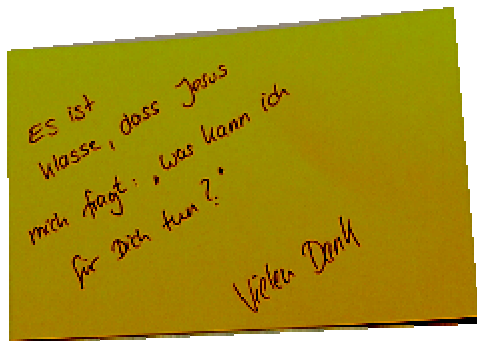 Es ist
klasse, dass Jesus
mich fragt: "was kann ich
für Dich tun?"
Vielen Dank